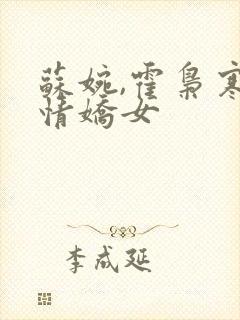 蘇婉,霍梟寒
情嬌女
李成延